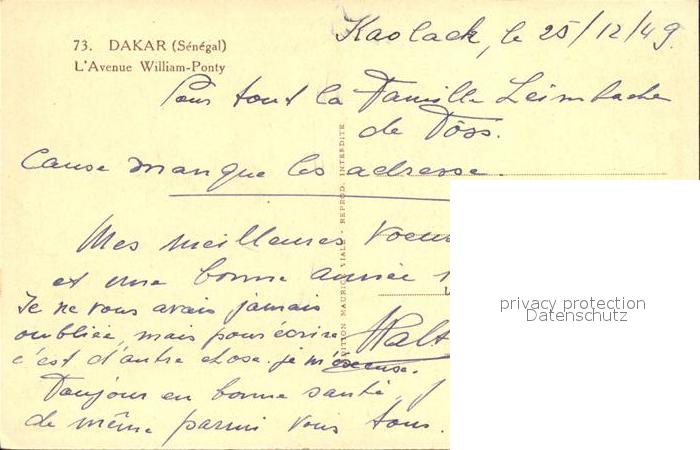 Kaolack, le 25/12/49.
73. DAKAR (Sénégal)
L'Avenue William-Ponty
Pour tout la Famille Leimbacher
de Töss.
Cause manque les adresse.
Mes meilleures voeux
et une bonne année 1
Je ne vous avais jamais
oubliée, mais pour écrire
c'est d'autre chose. je m'excuse.
Walt
Toujour en bonne santé,
de même parmi vous tous.
EDITION MAURICE VIALE - REPROD. INTERDITE
privacy protection
Datenschutz